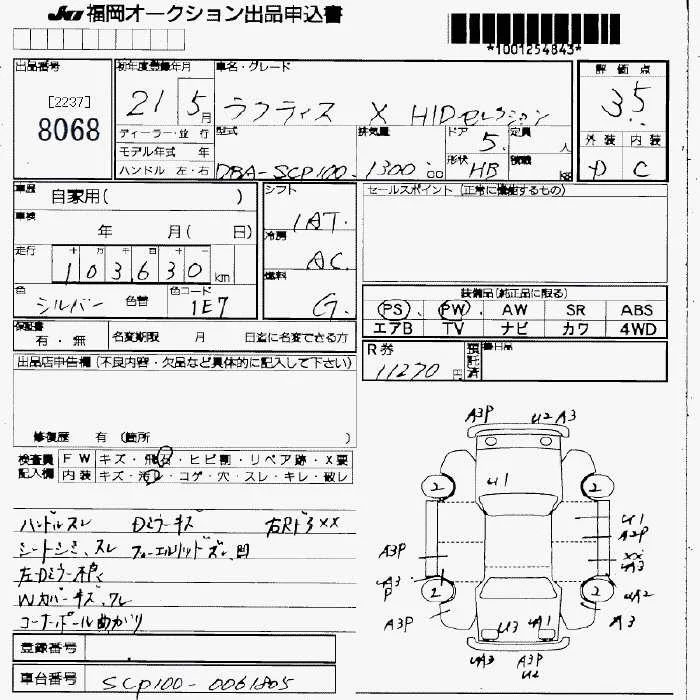 JU 福岡オークション出品申込書
*1001254843*
出品番号
[2237]
8068
初年度登録年月
21 5月
ディーラー・並 行
モデル年式 年
ハンドル 左・右
車名・グレード
ラフティス X HIDセレクション
型式 排気量 ドア 定員 人
DBA-SCP100- 1300 00 5
形状 積載 kg
HB
評価点
3.5
外装 内装
D C
車歴 自家用( )
車検 年 月( 日)
走行 十 万 千 百 十 一
103630 km
色 シルバー 色替 色コード 1E7
シフト
IAT.
冷房
AC
燃料
G.
セールスポイント (正常に機能するもの)
装備品(純正品に限る)
PS PW AW SR ABS
エアB TV ナビ カワ 4WD
保証書 有・無 名変期限 月 日迄に名変できる方
R券
11270円
預託済
後日品
出品店申告欄(不良内容・欠品など具体的に記入して下さい)
修復歴 有 (箇所 )
検査員 FW キズ・飛石・ヒビ割・リペア跡・X要
記入欄 内装 キズ・汚レ・コゲ・穴・スレ・キレ・破レ
ハンドルスレ Dミラーキズ 右Rドラ××
シートシミ、スレ フューエルリッドズレ、凹
左-Dミラー不良
Wカバーキズ、ワレ
コーナーポール曲がり
登録番号
車台番号 SCP100-0061805
A3P U2 A3
U1
2 2
U1
A2P
A3P ××
UA3
UA3
P 2 2 UA2
A3P A3
U3 UA1
UA3 A3P
U2